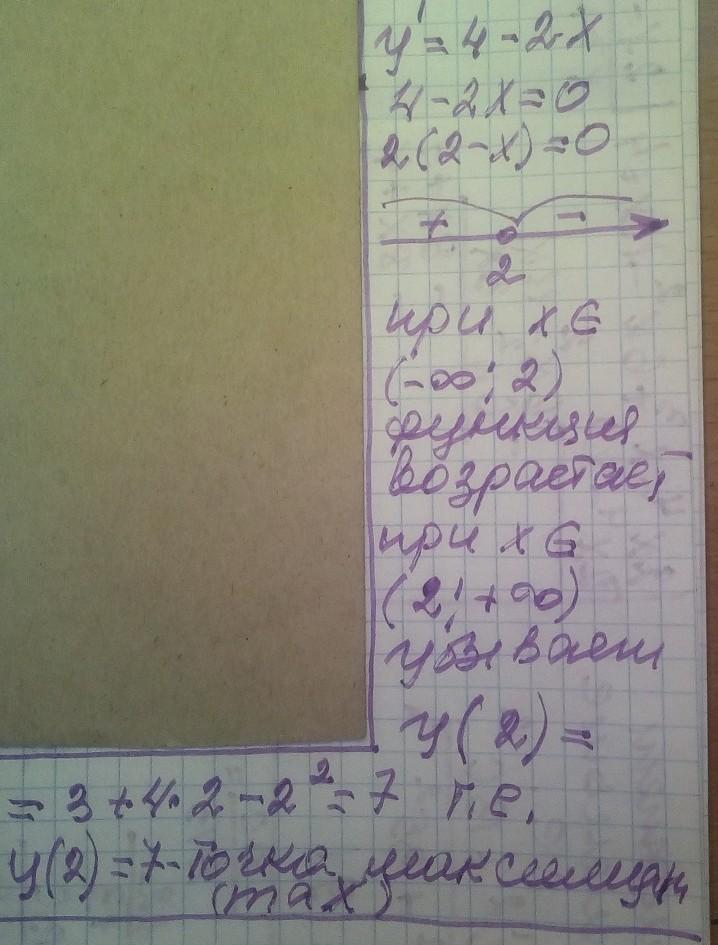 y' = 4 - 2·x
4 - 2x = 0
2(2-x) = 0
+ -
2
при x ∈
(-∞; 2)
функция
возрастает
при x ∈
(2; +∞)
убывает
y(2) =
= 3 + 4·2 - 2² = 7 т.е.
y(2) = 7 - точка максимума
(max)